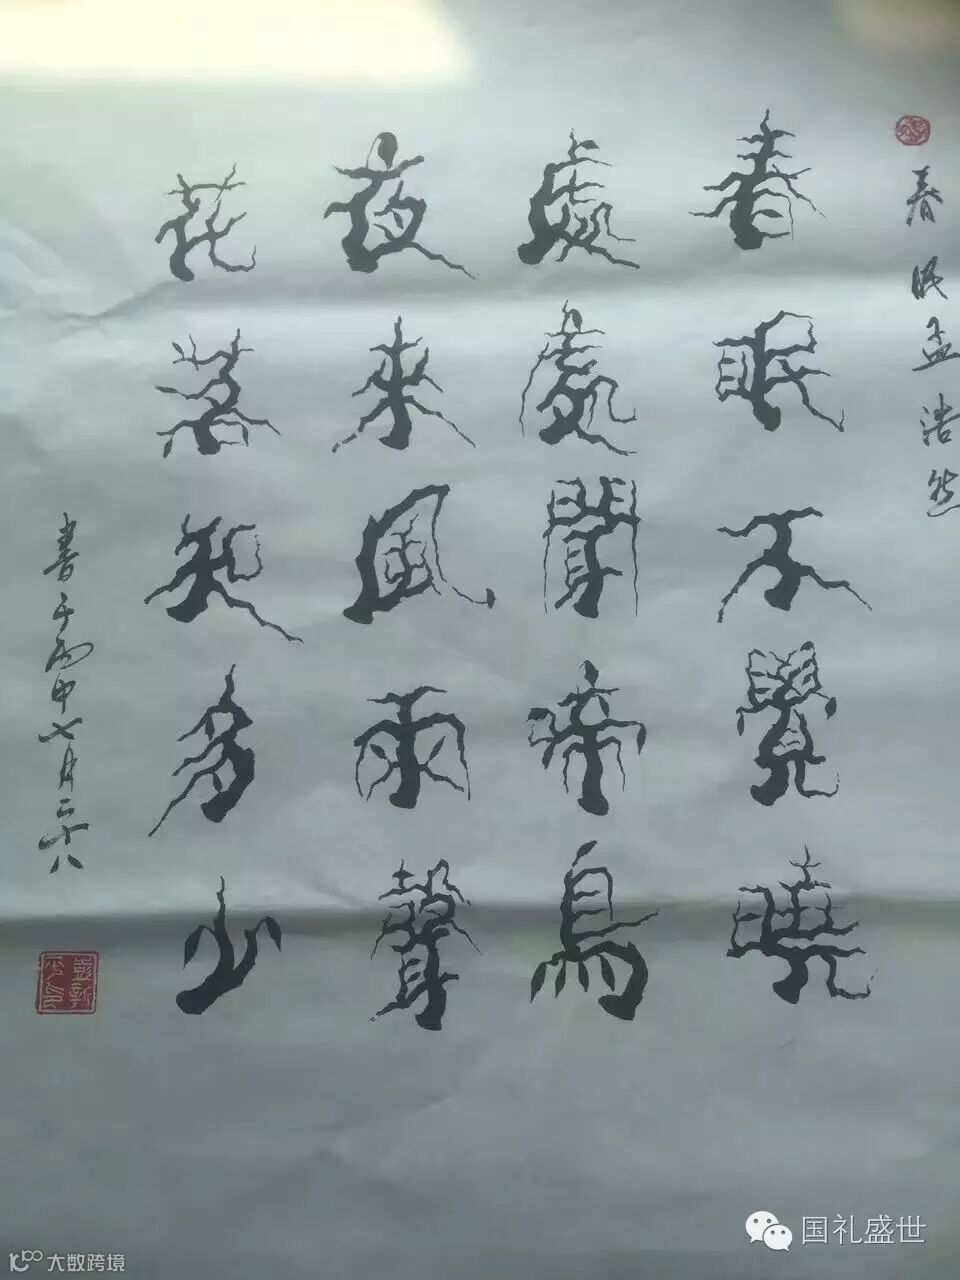 春晓孟浩然
春眠不覺曉
處處聞啼鳥
夜來風雨聲
花落知多少
書于丙申七月二十八
国礼盛世
大数跨境